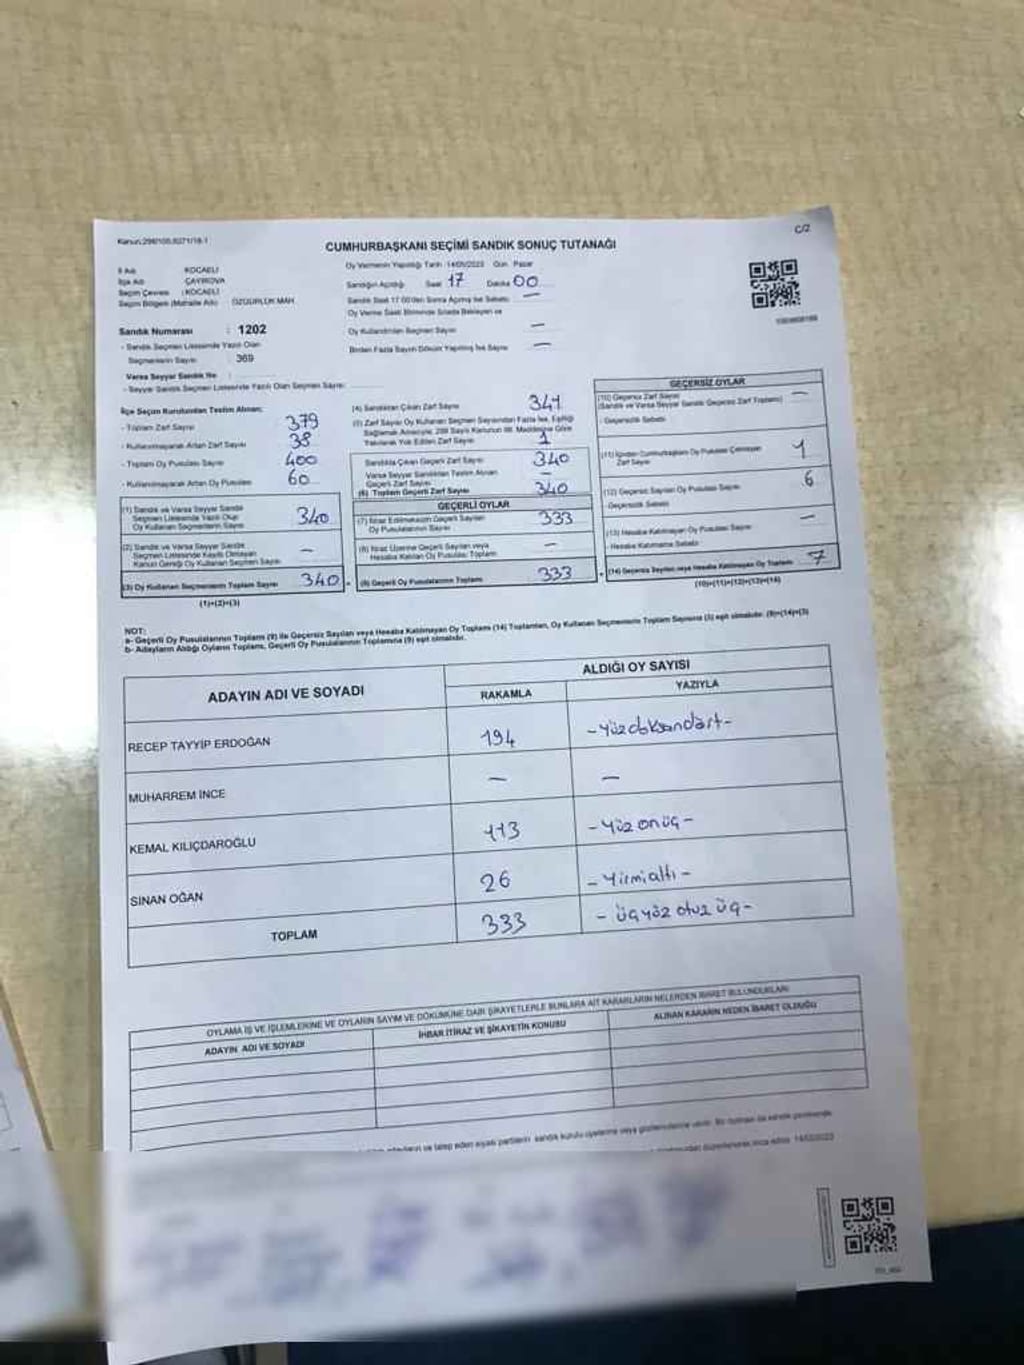 Kanun:298/100,6271/18-1
C/2
CUMHURBAŞKANI SEÇİMİ SANDIK SONUÇ TUTANAĞI
İl Adı KOCAELİ
İlçe Adı ÇAYIROVA
Seçim Çevresi : KOCAELİ
Seçim Bölgesi (Mahalle Adı) ÖZGÜRLÜK MAH.
Oy Vermenin Yapıldığı Tarih 14/05/2023 Gün Pazar
Sandığın Açıldığı Saat 17 Dakika 00
Sandık Saat 17:00'den Sonra Açılmış İse Sebebi: —
Oy Verme Saati Bitiminde Sırada Bekleyen ve
Oy Kullandırılan Seçmen Sayısı —
Birden Fazla Sayım Döküm Yapılmış İse Sayısı —
Sandık Numarası : 1202
- Sandık Seçmen Listesinde Yazılı Olan
Seçmenlerin Sayısı : 369
Varsa Seyyar Sandık No :
- Seyyar Sandık Seçmen Listesinde Yazılı Olan Seçmen Sayısı:
İlçe Seçim Kurulundan Teslim Alınan:
- Toplam Zarf Sayısı 379
- Kullanılmayarak Artan Zarf Sayısı 38
- Toplam Oy Pusulası Sayısı 400
- Kullanılmayarak Artan Oy Pusulası 60
(1) Sandık ve Varsa Seyyar Sandık
Seçmen Listesinde Yazılı Olup
Oy Kullanan Seçmenlerin Sayısı 340
(2) Sandık ve Varsa Seyyar Sandık
Seçmen Listesinde Kayıtlı Olmayan
Kanun Gereği Oy Kullanan Seçmen Sayısı —
(3) Oy Kullanan Seçmenlerin Toplam Sayısı 340
(1)+(2)=(3)
(4) Sandıktan Çıkan Zarf Sayısı 341
(5) Zarf Sayısı Oy Kullanan Seçmen Sayısından Fazla İse, Eşitliği
Sağlamak Amacıyla; 298 Sayılı Kanunun 98. Maddesine Göre
Yakılarak Yok Edilen Zarf Sayısı 1
Sandıkta Çıkan Geçerli Zarf Sayısı 340
Varsa Seyyar Sandıktan Teslim Alınan
Geçerli Zarf Sayısı —
(6) Toplam Geçerli Zarf Sayısı 340
GEÇERLİ OYLAR
(7) İtiraz Edilmeksizin Geçerli Sayılan
Oy Pusulalarının Sayısı 333
(8) İtiraz Üzerine Geçerli Sayılan veya
Hesaba Katılan Oy Pusulası Toplamı —
(9) Geçerli Oy Pusulalarının Toplamı 333
GEÇERSİZ OYLAR
(10) Geçersiz Zarf Sayısı —
(Sandık ve Varsa Seyyar Sandık Geçersiz Zarf Toplamı)
- Geçersizlik Sebebi:
(11) İçinden Cumhurbaşkanı Oy Pusulası Çıkmayan
Zarf Sayısı 1
(12) Geçersiz Sayılan Oy Pusulası Sayısı 6
- Geçersizlik Sebebi:
(13) Hesaba Katılmayan Oy Pusulası Sayısı —
- Hesaba Katılmama Sebebi:
(14) Geçersiz Sayılan veya Hesaba Katılmayan Oy Toplamı 7
(10)+(11)+(12)+(13)=(14)
NOT:
a- Geçerli Oy Pusulalarının Toplamı (9) ile Geçersiz Sayılan veya Hesaba Katılmayan Oy Toplamı (14) Toplamları, Oy Kullanan Seçmenlerin Toplam Sayısına (3) eşit olmalıdır. (9)+(14)=(3)
b- Adayların Aldığı Oyların Toplamı, Geçerli Oy Pusulalarının Toplamına (9) eşit olmalıdır.
ADAYIN ADI VE SOYADI
ALDIĞI OY SAYISI
RAKAMLA YAZIYLA
RECEP TAYYİP ERDOĞAN 194 -yüzdoksandört-
MUHARREM İNCE — —
KEMAL KILIÇDAROĞLU 113 -yüz onüç-
SİNAN OĞAN 26 -yirmialtı-
TOPLAM 333 -üçyüz otuz üç-
OYLAMA İŞ VE İŞLEMLERİNE VE OYLARIN SAYIM VE DÖKÜMÜNE DAİR ŞİKAYETLERLE BUNLARA AİT KARARLARIN NELERDEN İBARET BULUNDUKLARI
ADAYIN ADI VE SOYADI İHBAR İTİRAZ VE ŞİKAYETİN KONUSU ALINAN KARARIN NEDEN İBARET OLDUĞU
talep eden siyasi partilerin sandık kurulu üyelerine veya gözlemcilerine verilir. Bir nüshası da sandık çevresinde
düzenlenerek imza edildi. 14/05/2023